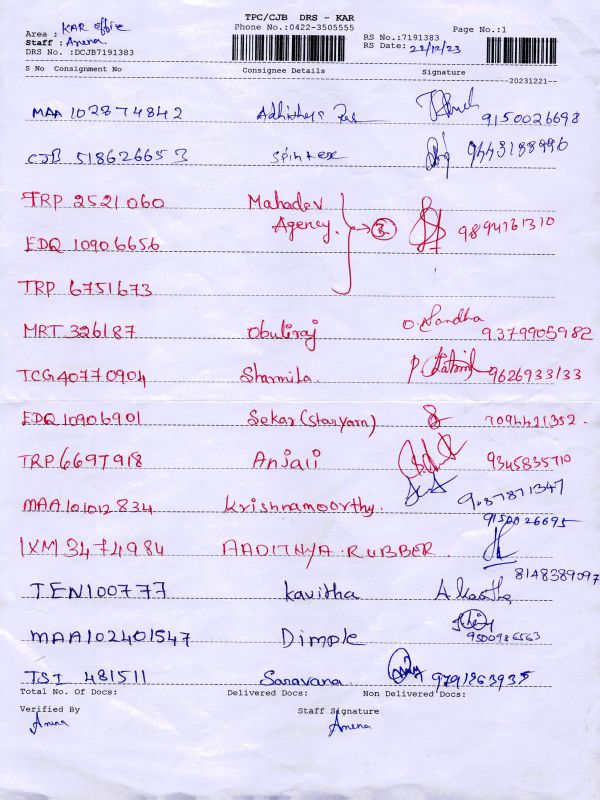 TPC/CJB DRS - KAR
Phone No.:0422-3505555
Page No.:1
Area : KAR office
Staff : Anena
DRS No. :DCJB7191383
RS No.:7191383
RS Date: 22/12/23
S No Consignment No Consignee Details Signature
20231221
MAA 102874842 9150026698
CJB 518626653 Spintex 9443188996
TRP 2521060 Mahadev
Agency. → 3. 9894161310
EDQ 10906656
TRP 6751673
MRT 326187 Obuliraj O. Nandha 9379905982
TCG40770904 Sharmila. 9626933133
EDQ 10906901 Sekar (Staryarn) 7094421352.
TRP 6697918 Anjali 9345835710
MAA101012834 Krishnamoorthy. 9087871347
9150026695
IXM 3474984 AADITHYA RUBBER.
8148389097
TEN100777 Kavitha
MAA102401547 Dimple 9500986563
TSI 481511 Saravana 9791263935
Total No. Of Docs: Delivered Docs: Non Delivered Docs:
Verified By Staff Signature
Anena Anena